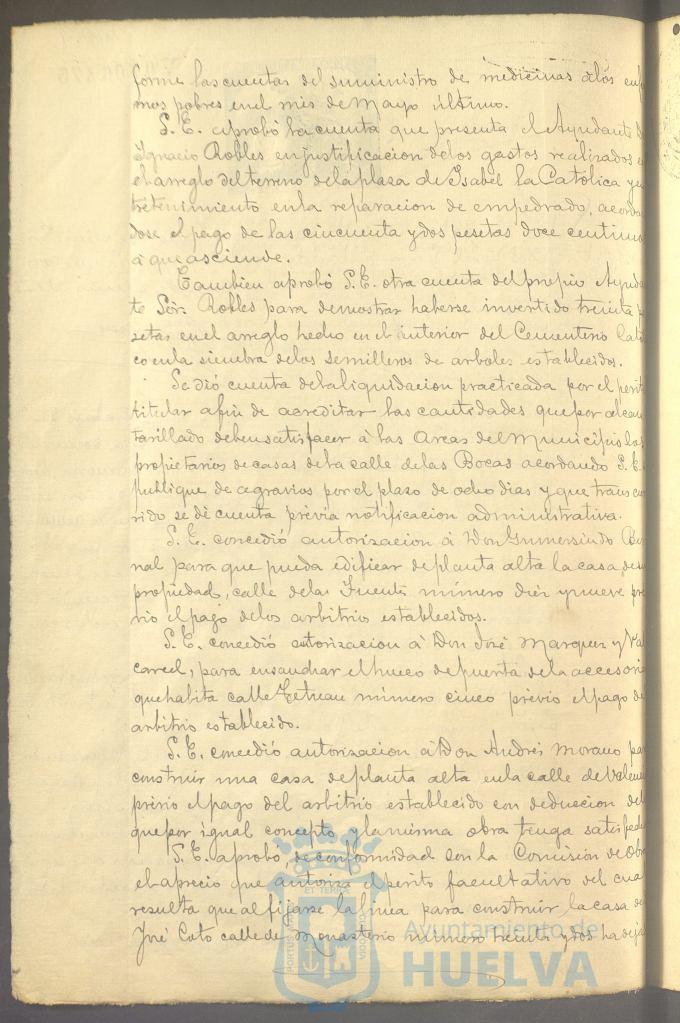 forme las cuentas del suministro de medicinas á los enfer
mos pobres en el mes de Mayo último.
S. E. aprobó la cuenta que presenta el Ayudante D.
Ignacio Robles en justificacion de los gastos realizados en
el arreglo del terreno de la plaza de Isabel la Católica y en
tretenimiento en la reparacion de empedrado, acorda
dose el pago de las cincuenta y dos pesetas doce centimos
á que asciende.
Tambien aprobó S. E. otra cuenta del propio Ayuda
te Sor. Robles para demostrar haberse invertido treinta p
setas en el arreglo hecho en el interior del Cementerio Cató
co en la siembra de los semilleros de arboles establecidos.
Se dió cuenta de la liquidacion practicada por el perito
titular á fin de acreditar las cantidades que por alcan
tarillado deben satisfacer á las Arcas del Municipio los
propietarios de casas de la calle de las Bocas acordando S. E.
publique de agravios por el plazo de ocho dias y que transcur
rido se dé cuenta prévia notificacion administrativa.
S. E. concedió autorizacion á Don Gumersindo Ber
nal para que pueda edificar de planta alta la casa de su
propiedad, calle de las Fuentes número diez y nueve pre
vio el pago de los arbitrios establecidos.
S. E. concedió autorizacion á Don José Marquez y Va
carcel, para ensanchar el hueco de puerta de la accesoria
que habita calle Tetuan número cinco prévio el pago de
arbitrio establecido.
S. E. concedió autorizacion á Don Andrés Morano pa
construir una casa de planta alta en la calle de Valen
prévio el pago del arbitrio establecido con deduccion del
que por igual concepto y la misma obra tenga satisfecho
S. E. aprobó, de conformidad con la Comision de Obra
el aprecio que autoriza el perito facultativo del cual
resulta que al fijarse la linea para construir la casa de
José Coto calle de Monasterio número treinta y dos ha deja
Ayuntamiento de
HUELVA